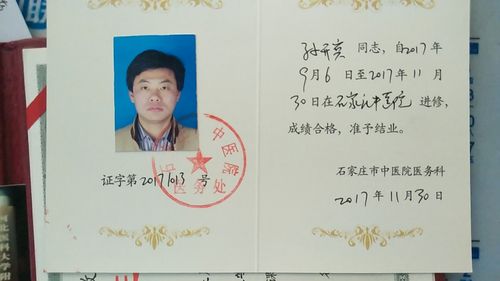 孙开宾 同志，自2017年
9月6日至2017年11月
30日在石家庄中医院进修，
成绩合格，准予结业。
石家庄市中医院医务科
2017年11月30日
中医院
医务处
证字第20171013号
河北医
科大学附